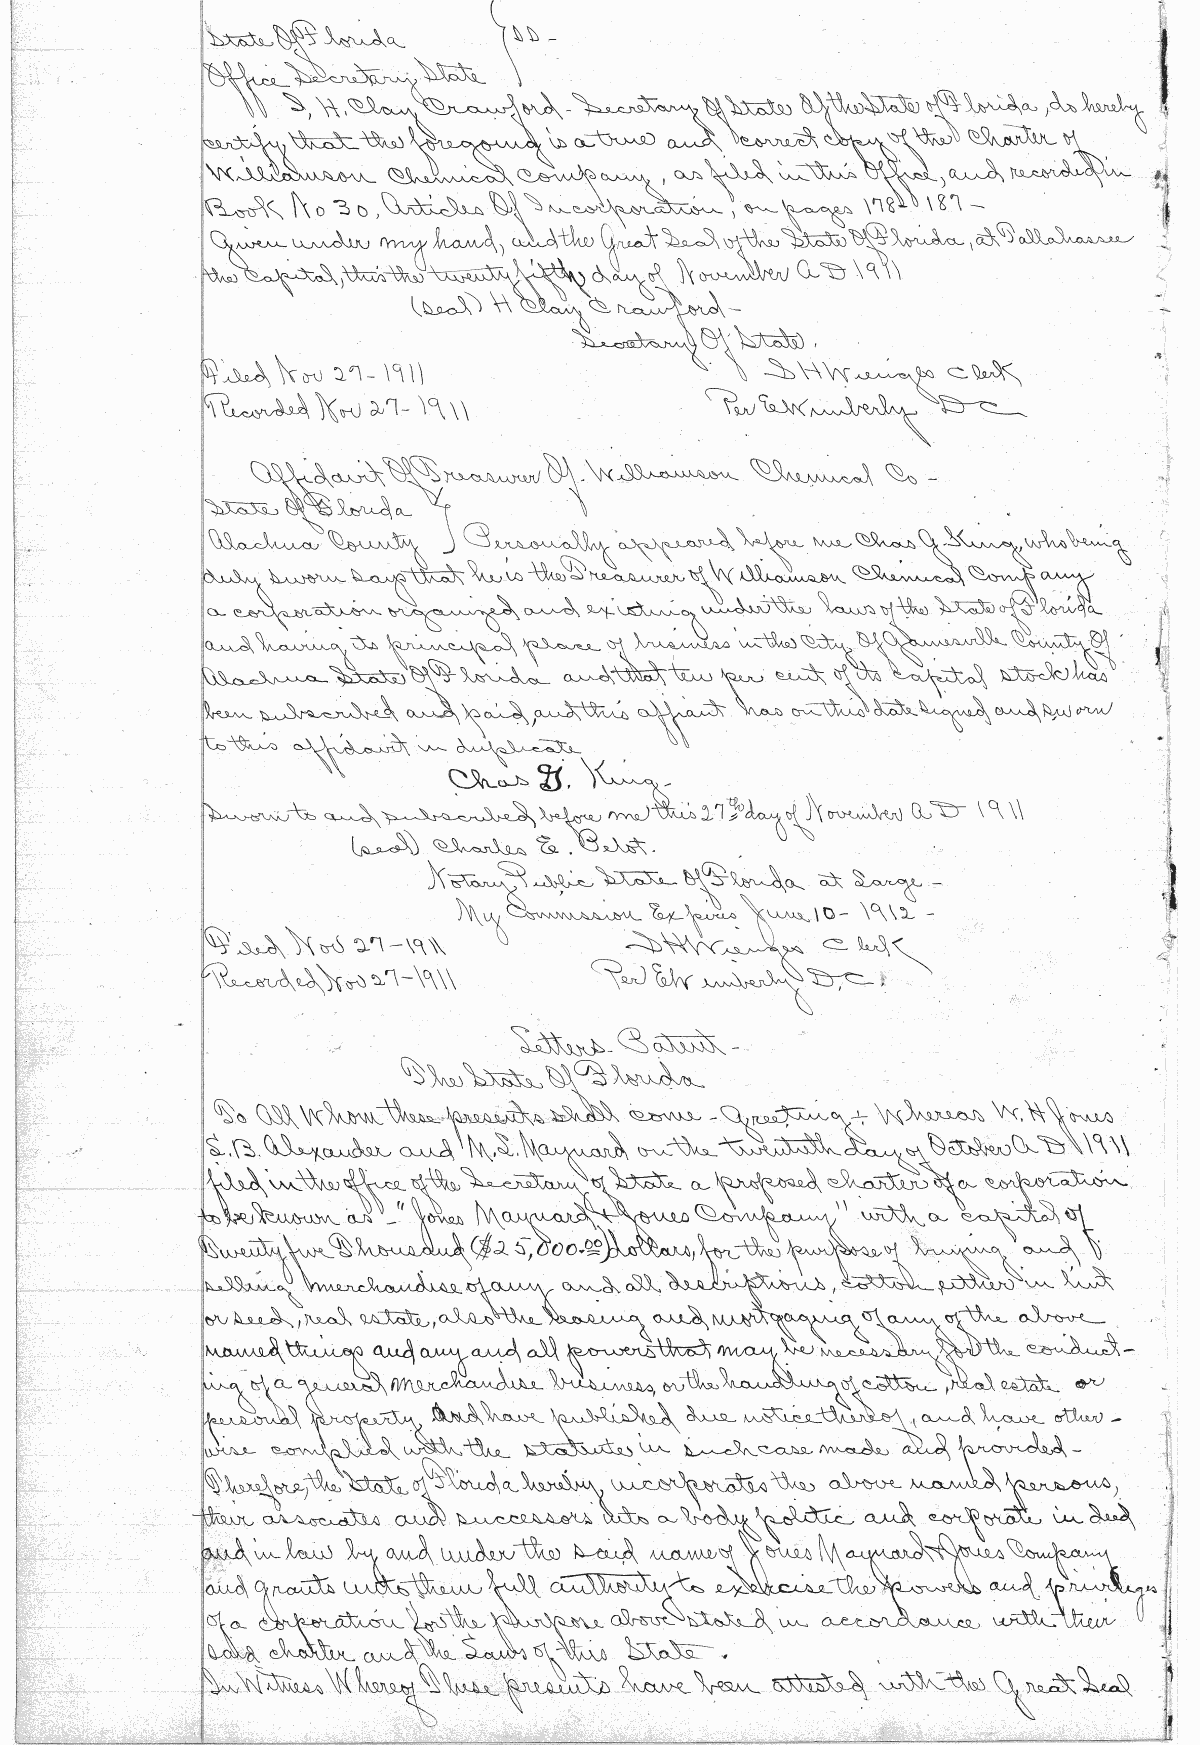 State Of Florida } ss -
Office Secretary State
I, H. Clay Crawford - Secretary Of State Of the State of Florida, do hereby
certify that the foregoing is a true and correct copy of the Charter of
Williamson Chemical Company, as filed in this Office, and recorded in
Book No 30, Articles Of Incorporation, on pages 178 - 187 -
Given under my hand, and the Great Seal of the State Of Florida, at Tallahassee
the Capital, this the twenty fifth day of November A D 1911
(seal) H Clay Crawford -
Secretary Of State.
Filed Nov 27 - 1911 S H Wienges Clerk
Recorded Nov 27 - 1911 Per E Wimberly D C
Affidavit Of Treasurer Of. Williamson Chemical Co -
State Of Florida }
Alachua County } Personally appeared before me Chas G. King, who being
duly sworn says that he is the Treasurer of Williamson Chemical Company
a corporation organized and existing under the laws of the State of Florida
and having its principal place of business in the City Of Gainesville County Of
Alachua State Of Florida and that ten per cent of its capital stock has
been subscribed and paid, and this affiant has on this date signed and sworn
to this affidavit in duplicate
Chas G. King -
Sworn to and subscribed before me this 27th day of November A D 1911
(seal) Charles E. Pelot.
Notary Public State Of Florida at Large -
My Commission Expires June 10 - 1912 -
Filed Nov 27 - 1911 S H Wienges Clerk
Recorded Nov 27 - 1911 Per E W imberly D. C.
Letters - Patent -
The State Of Florida
To All Whom these presents shall come - Greeting + Whereas W. H Jones
S. B. Alexander and M. L. Maynard on the twentieth day of October A D 1911
filed in the office of the Secretary of State a proposed charter of a corporation
to be known as - "Jones Maynard & Jones Company" with a capital of
Twenty five Thousand ($25,000.00) dollars, for the purpose of buying and
selling merchandise of any and all descriptions, cotton, either in lint
or seed, real estate, also the leasing and mortgaging of any of the above
named things and any and all powers that may be necessary for the conduct-
ing of a general merchandise business, or the handling of cotton, real estate or
personal property, And have published due notice thereof, and have other -
wise complied with the statute in such case made and provided -
Therefore, the State of Florida hereby incorporates the above named persons,
their associates and successors into a body politic and corporate in deed
and in law by and under the said name of Jones Maynard & Jones Company
and grants unto them full authority to exercise the powers and privileges
of a corporation for the purpose above stated in accordance with their
said charter and the Laws of this State.
In Witness Whereof These presents have been attested with the Great Seal